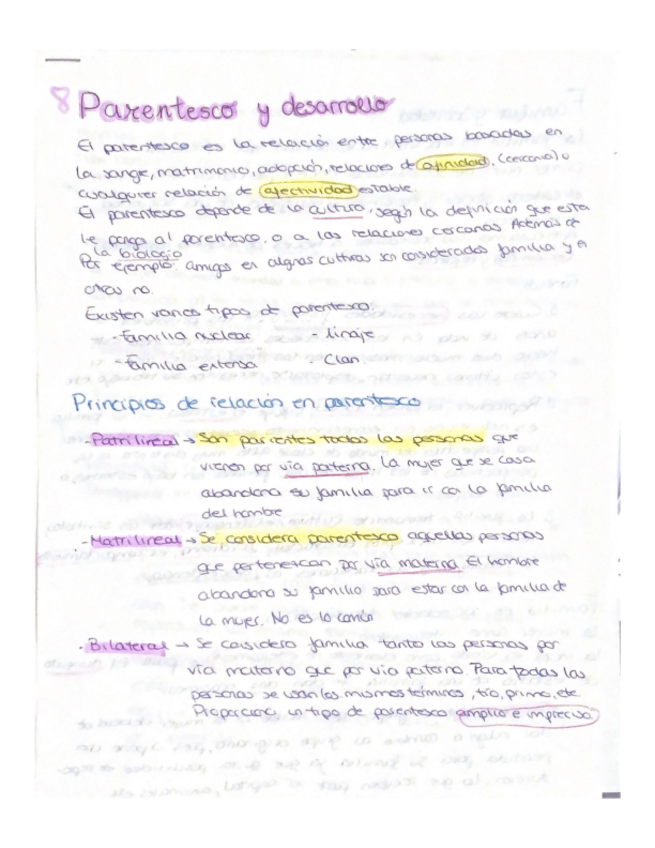 8 Parentesco y desarrollo
El parentesco es la relación entre personas basadas en
la sangre, matrimonio, adopción, relaciones de afinidad, (cercanía) o
cualquier relación de afectividad estable.
El parentesco depende de la cultura, según la definición que esta
le ponga al parentesco, o a las relaciones cercanas. Además de
la biología
Por ejemplo, amigos en algunas culturas son considerados familia y en
otras no.
Existen varios tipos de parentesco:
- familia nuclear - linaje
- familia extensa - Clan.
Principios de relación en parentesco
- Patrilineal → Son parientes todas las personas que
vienen por vía paterna. La mujer que se casa
abandona su familia para ir con la familia
del hombre
- Matrilineal → Se considera parentesco aquellas personas
que pertenezcan por vía materna. El hombre
abandona su familia para estar con la familia de
la mujer. No es lo común
- Bilateral → Se considera familia tanto las personas por
vía materna que por vía paterna. Para todas las
personas se usan los mismos términos, tío, primo, etc.
Proporciona un tipo de parentesco amplio e impreciso